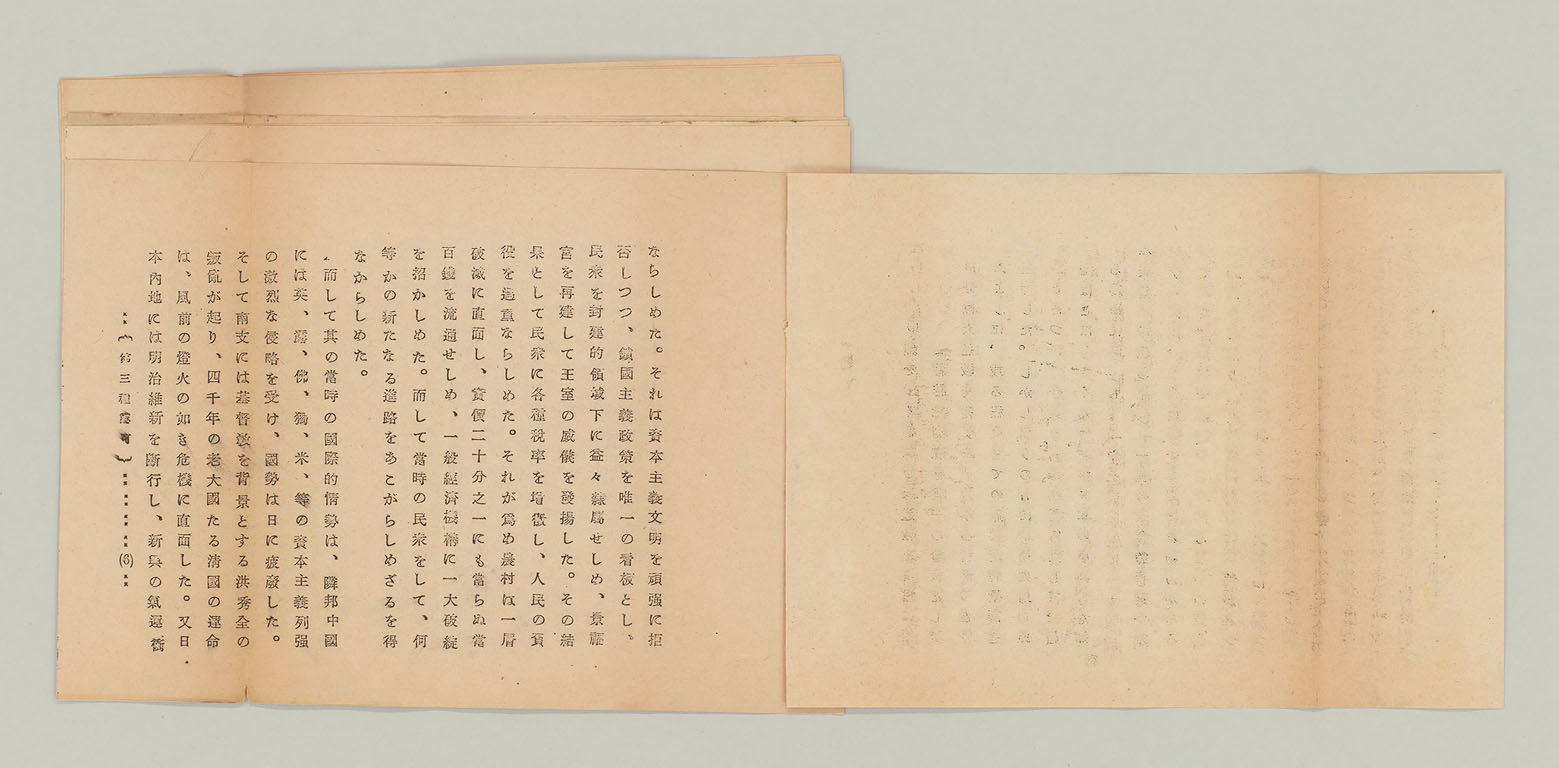 ならしめた。それは資本主義文明を頑强に拒
否しつつ、鎖國主義政策を唯一の看板とし、
民衆を封建的領域下に益々隷屬せしめ、景福
宮を再建して王室の威儀を發揚した。その結
果として民衆に各種税率を増徵し、人民の賦
役を過重ならしめた。それが爲め農村は一層
破滅に直面し、實價二十分之一にも當らぬ當
百錢を流通せしめ、一般經濟機構に一大破綻
を招かしめた。而して當時の民衆をして、何
等かの新たなる進路をあこがらしめざるを得
なからしめた。
而して其の當時の國際的情勢は、隣邦中國
には英、露、佛、獨、米、等の資本主義列强
の激烈な侵略を受け、國勢は日に疲廢した。
そして南支には基督敎を背景とする洪秀全の
叛亂が起り、四千年の老大國たる淸國の運命
は、風前の燈火の如き危機に直面した。又日
本內地には明治維新を斷行し、新興の氣運
第三種 (6)